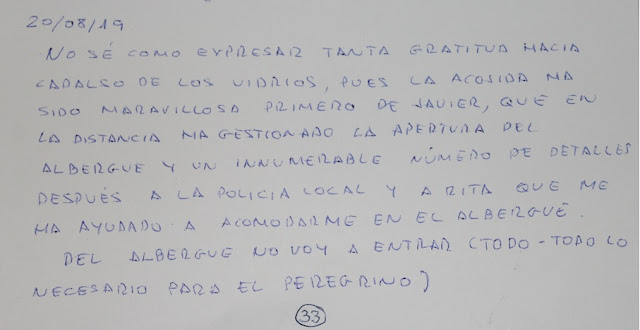 20/08/19
NO SÉ COMO EXPRESAR TANTA GRATITUD HACIA
CADALSO DE LOS VIDRIOS, PUES LA ACOGIDA HA
SIDO MARAVILLOSA PRIMERO DE JAVIER, QUE EN
LA DISTANCIA HA GESTIONADO LA APERTURA DEL
ALBERGUE Y UN INNUMERABLE NÚMERO DE DETALLES
DESPUÉS A LA POLICIA LOCAL Y A RITA QUE ME
HA AYUDADO A ACOMODARME EN EL ALBERGUE.
DEL ALBERGUE NO VOY A ENTRAR (TODO-TODO LO
NECESARIO PARA EL PEREGRINO)
33